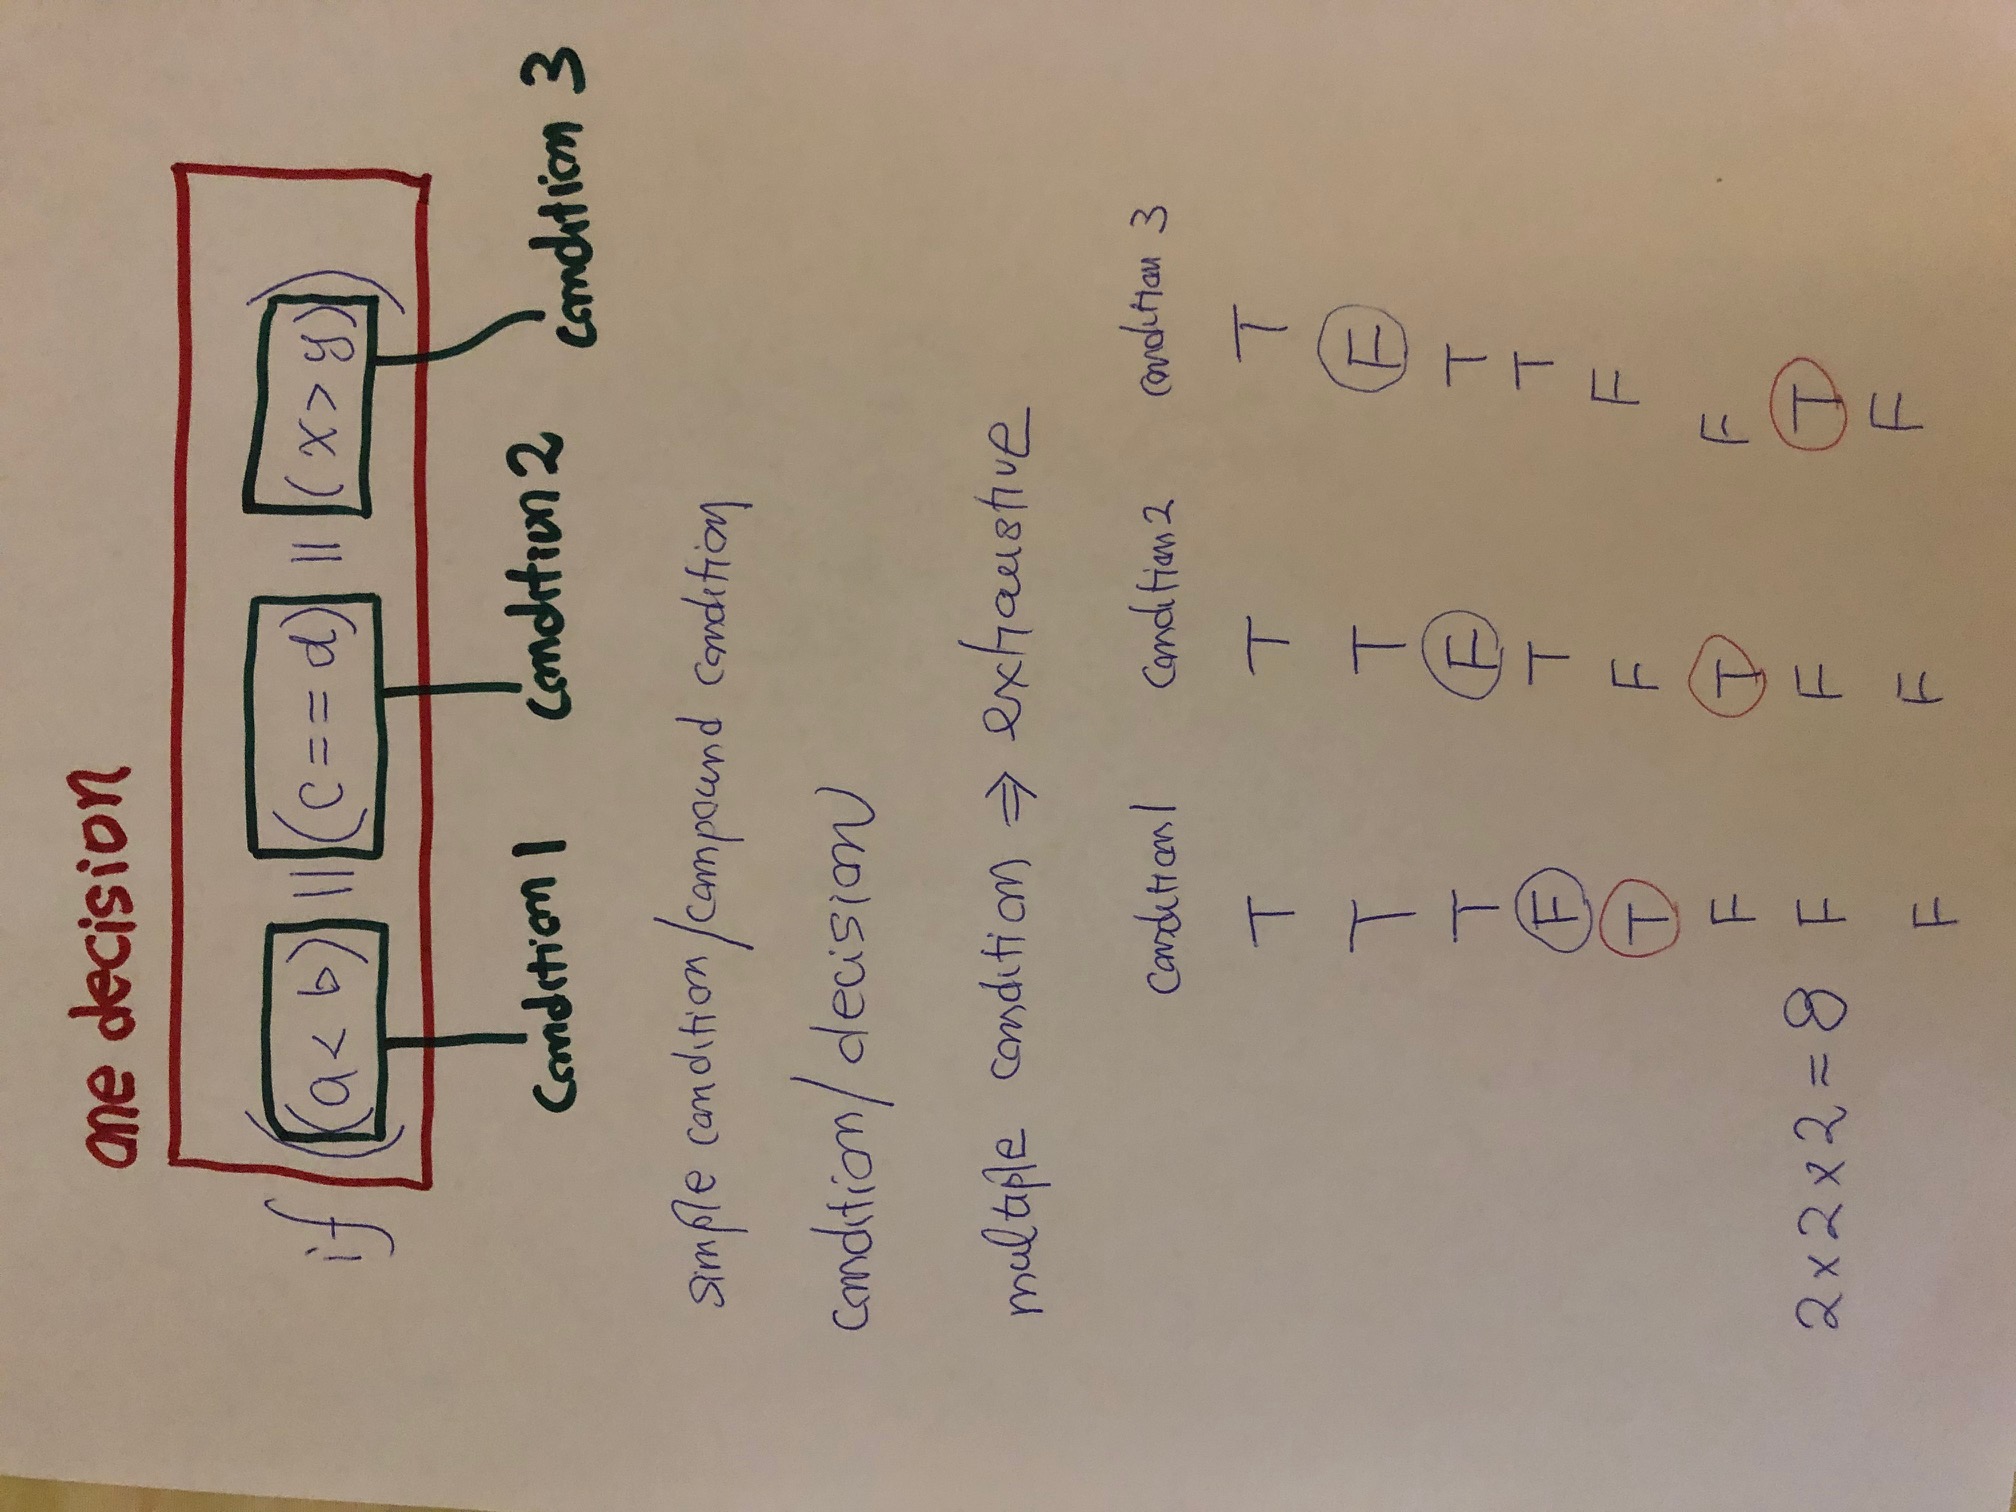 one decision
if ((a < b) || (c == d) || (x > y))
condition 1 condition 2 condition 3
simple condition/compound condition
condition/decision
multiple condition ⇒ exhaustive
condition 1 condition 2 condition 3
T T T
T T F
T F T
F T T
T F F
F T F
2 x 2 x 2 = 8 F F T
F F F